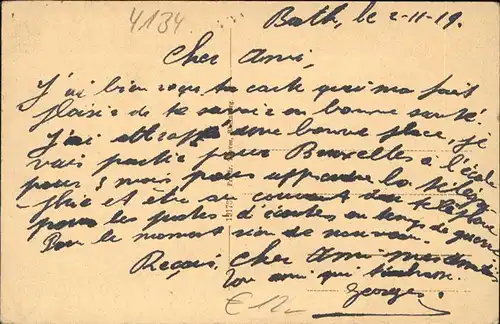 4134
Bath, le 2-11-19.
Cher Ami,
J'ai bien reçu ta carte qui m'a fait
plaisir de te savoir en bonne santé.
J'ai attrapé une bonne place, je
vais partir pour Bruxelles à l'école
pour 3 mois pour apprendre la télégra
phie et être au courant du téléphone
pour les postes d'écoutes en temps de guerre
Pour le moment rien de nouveau.
Reçois, Cher Ami
Ton ami qui
Georges.
€12